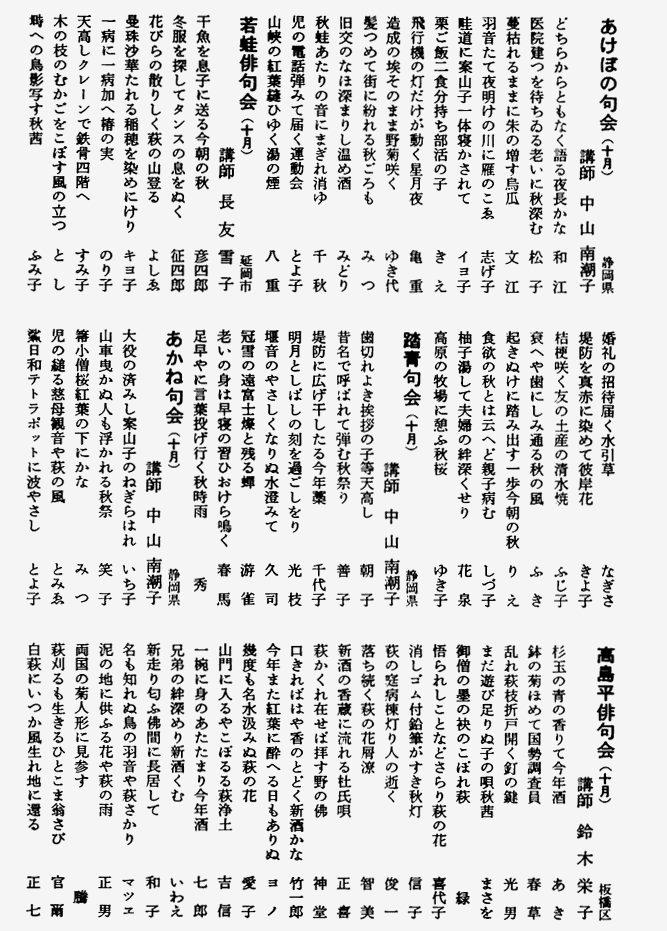 あけぼの句会(十月)
静岡県
講師 中山南潮子
どちらからともなく語る夜長かな 和江
医院建つを待ちゐる老いに秋深む 松子
蔓枯れるままに朱の増す烏瓜 文江
羽音たて夜明けの川に雁のこゑ 志げ子
畦道に案山子一体寝かされて イヨ子
栗ご飯二食分持ち部活の子 きえ
飛行機の灯だけが動く星月夜 亀重
造成の埃そのまま野菊咲く ゆき代
髪つめて街に紛れる秋ごろも みつ
旧交のなほ深まりし温め酒 みどり
秋蛙あたりの音にまぎれ消ゆ 千秋
児の電話弾みて届く運動会 とよ子
山峡の紅葉縫ひゆく湯の煙 八重
若蛙俳句会(十月)
延岡市
講師 長友雪子
干魚を息子に送る今朝の秋 彦四郎
冬服を探してタンスの息をぬく 征四郎
花びらの散りしく萩の山登る よしゑ
曼珠沙華たれる稲穂を染めにけり キヨ子
一病に一病加へ椿の実 のり子
天高しクレーンで鉄骨四階へ すみ子
木の枝のむかごをこぼす風の立つ とし
塒への鳥影写す秋茜 ふみ子
婚礼の招待届く水引草 なぎさ
堤防を真赤に染めて彼岸花 きよ子
桔梗咲く友の土産の清水焼 ふじ子
衰へや歯にしみ通る秋の風 ふき
起きぬけに踏み出す一歩今朝の秋 りえ
食欲の秋とは云へど親子病む しづ子
柚子湯して夫婦の絆深くせり 花泉
高原の牧場に憩ふ秋桜 ゆき子
踏青句会(十月)
静岡県
講師 中山南潮子
歯切れよき挨拶の子等天高し 朝子
昔名で呼ばれて弾む秋祭り 善子
堤防に広げ干したる今年藁 千代子
明月としばしの刻を過ごしをり 光枝
堰音のやさしくなりぬ水澄みて 久司
冠雪の遠富士燦と残る蟬 游雀
老いの身は早寝の習ひおけら鳴く 春馬
足早やに言葉投げ行く秋時雨 秀
あかね句会(十月)
静岡県
講師 中山南潮子
大役の済みし案山子のねぎらはれ いち子
山車曳かぬ人も浮かれる秋祭 笑子
箒小僧桜紅葉の下にかな みつ
児の縋る慈母観音や萩の風 とみゑ
鯊日和テトラポットに波やさし とよ子
高島平俳句会(十月)
板橋区
講師 鈴木栄子
杉玉の青の香りて今年酒 あき
鉢の菊ほめて国勢調査員 春草
乱れ萩枝折戸開く釘の鍵 光男
まだ遊び足りぬ子の唄秋茜 まさを
御僧の墨の袂のこぼれ萩 緑
悟られしことなどさらり萩の花 喜代子
消しゴム付鉛筆がすき秋灯 信子
萩の庭病棟灯り人の逝く 俊一
落ち続く萩の花屑潦 智美
新酒の香蔵に流れる杜氏唄 正喜
萩かくれ在せば拝す野の佛 神堂
口きればはや香のとどく新酒かな 竹一郎
今年また紅葉に酔へる日もありぬ ヨノ
幾度も名水汲みぬ萩の花 愛子
山門に入るやこぼるる萩浄土 吉信
一椀に身のあたたまり今年酒 七郎
兄弟の絆深めり新酒くむ いわえ
新走り匂ふ佛間に長居して 和子
名も知れぬ鳥の羽音や萩さかり マツヱ
泥の地に供ふる花や萩の雨 正男
両国の菊人形に見参す 騰
萩刈るも生きるひとこま翁さび 官爾
白萩にいつか風生れ地に還る 正七